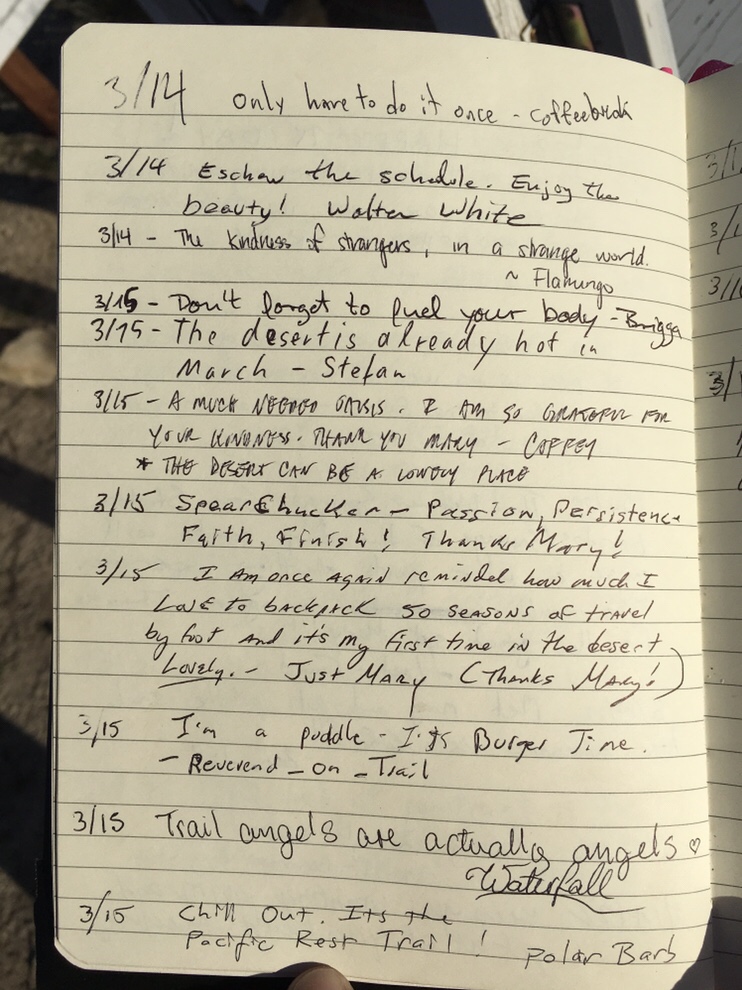 3/14 only have to do it once -
3/14 Eschew the schedule. Enjoy the
beauty! Walter White
3/14 - The kindness of strangers, in a strange world.
~ Flamingo
3/15 - Don't forget to fuel your body - Brigga
3/15 - The desert is already hot in
March - Stefan
3/15 - A MUCH NEEDED OASIS. I AM SO GRATEFUL FOR
YOUR KINDNESS. THANK YOU MARY - COFFEY
* THE DESERT CAN BE A LONELY PLACE
3/15 SpearChucker - Passion, Persistence
Faith, Finish! Thanks Mary!
3/15 I Am once Again reminded how much I
Love to backpack 50 seasons of travel
by foot And it's my first time in the desert
Lovely. - Just Mary (Thanks Mary!)
3/15 I'm a puddle - It's Burger Time.
- Reverend_on_Trail
3/15 Trail angels are actually angels ♡
Waterfall
3/15 Chill Out. Its the
Pacific Rest Trail! Polar Barb
3/1
3/1
3/1
3/1